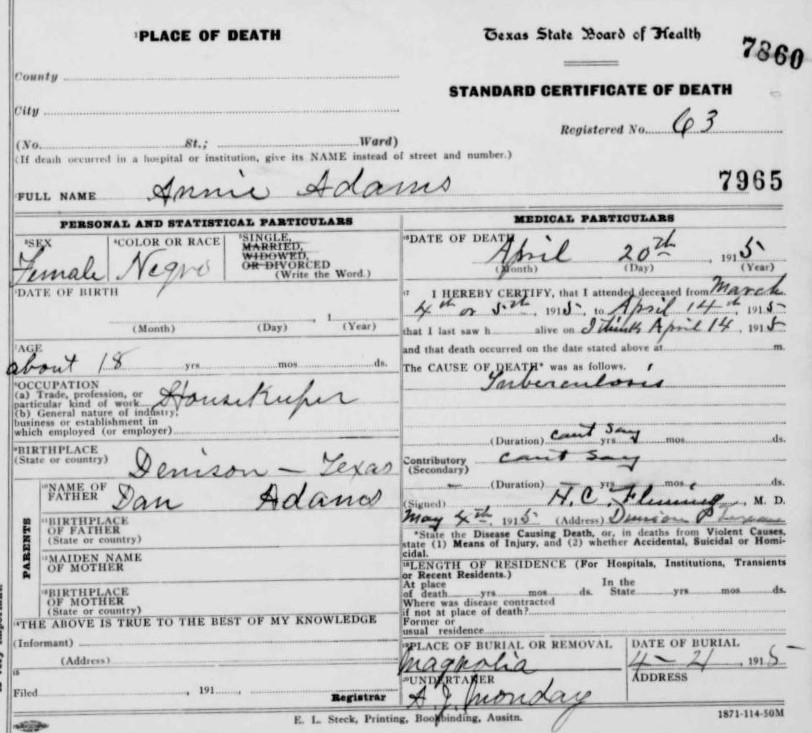 ¹PLACE OF DEATH
Texas State Board of Health
7860
County
STANDARD CERTIFICATE OF DEATH
City
Registered No. 63
(No. St.; Ward)
(If death occurred in a hospital or institution, give its NAME instead of street and number.)
7965
²FULL NAME Annie Adams
PERSONAL AND STATISTICAL PARTICULARS
³SEX
Female
⁴COLOR OR RACE
Negro
⁵SINGLE,
MARRIED,
WIDOWED,
OR DIVORCED
(Write the Word.)
⁶DATE OF BIRTH
, 1
(Month) (Day) (Year)
⁷AGE
about 18 yrs mos ds.
⁸OCCUPATION
(a) Trade, profession, or
particular kind of work Housekeeper
(b) General nature of industry,
business or establishment in
which employed (or employer)
⁹BIRTHPLACE
(State or country) Denison - Texas
PARENTS
¹⁰NAME OF
FATHER Dan Adams
¹¹BIRTHPLACE
OF FATHER
(State or country)
¹²MAIDEN NAME
OF MOTHER
¹³BIRTHPLACE
OF MOTHER
(State or country)
¹⁴THE ABOVE IS TRUE TO THE BEST OF MY KNOWLEDGE
(Informant)
(Address)
¹⁵
Filed , 191 , Registrar
MEDICAL PARTICULARS
¹⁶DATE OF DEATH
April 20th, 1915
(Month) (Day) (Year)
¹⁷ I HEREBY CERTIFY, that I attended deceased from March
4th or 5th, 1915, to April 14th, 1915
that I last saw h alive on I think April 14, 1915
and that death occurred on the date stated above at m.
The CAUSE OF DEATH* was as follows.
Tuberculosis
(Duration) cant say yrs mos ds.
Contributory cant say
(Secondary)
- (Duration) yrs mos ds.
(Signed) H. C. Fleming, M. D.
May 4th, 1915 (Address) Denison Texas
*State the Disease Causing Death, or, in deaths from Violent Causes,
state (1) Means of Injury, and (2) whether Accidental, Suicidal or Homi-
cidal.
¹⁸LENGTH OF RESIDENCE (For Hospitals, Institutions, Transients
or Recent Residents.)
At place In the
of death yrs mos ds. State yrs mos ds.
Where was disease contracted
if not at place of death?
Former or
usual residence
¹⁹PLACE OF BURIAL OR REMOVAL
Magnolia
DATE OF BURIAL
4-21, 1915
²⁰UNDERTAKER
A. J. Monday
ADDRESS
E. L. Steck, Printing, Bookbinding, Ausitn.
1871-114-50M